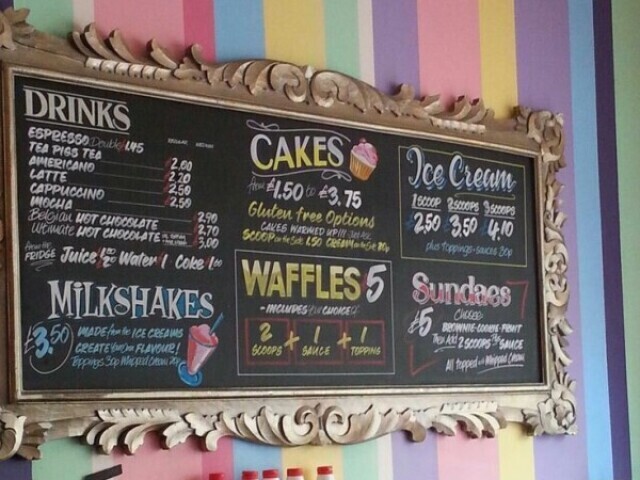 DRINKS
ESPRESSO Double 1.45
TEA PIGS TEA
AMERICANO 2.00
LATTE 2.20
CAPPUCCINO 2.50
MOCHA 2.50
Belgian HOT CHOCOLATE 2.90
Ultimate HOT CHOCOLATE 2.70
3.00
from the FRIDGE Juice Water £1 Coke
MILKSHAKES
£3.50
MADE from the ICE CREAMS
CREATE Your Own FLAVOUR!
Toppings 30p Whipped Cream
CAKES
from £1.50 to £3.75
Gluten free Options
CAKES WARMED UP!!!
SCOOP on the Side 1.50 CREAM on the Side
WAFFLES 5
- INCLUDES Your CHOICE of
2 SCOOPS + 1 SAUCE + 1 TOPPING
Ice Cream
1 SCOOP 2 SCOOPS 3 SCOOPS
£2.50 £3.50 £4.10
plus toppings - sauces 30p
Sundaes
£5 CHOOSE
BROWNIE - COOKIE - FRUIT
Then Add 2 SCOOPS SAUCE
All topped with Whipped Cream